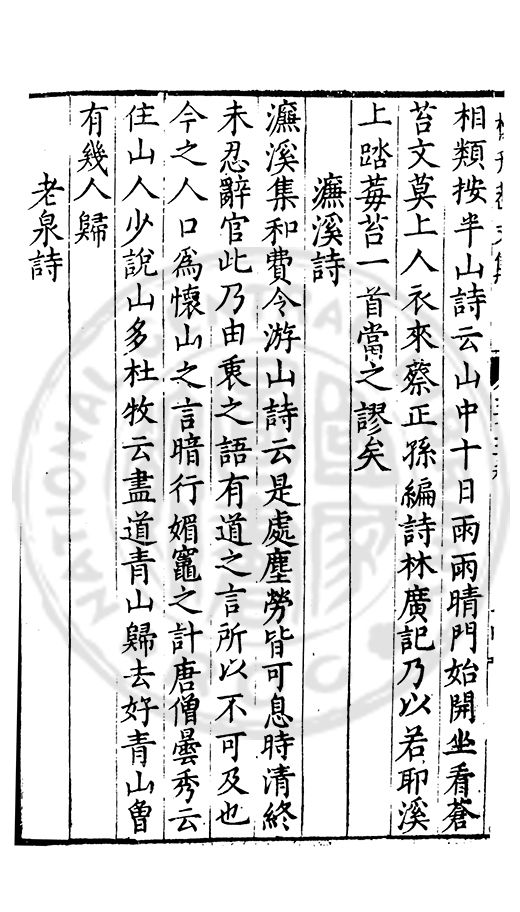 相類按半山詩云山中十日雨雨晴門始開坐看蒼
苔文莫上人衣來蔡正孫編詩林廣記乃以若耶溪
上踏莓苔一首當之謬矣
濂溪詩
濂溪集和費令游山詩云是處塵勞皆可息時清終
未忍辭官此乃由衷之語有道之言所以不可及也
今之人口為懷山之言暗行媚竈之計唐僧曇秀云
住山人少說山多杜牧云盡道青山歸去好青山曾
有幾人歸
老泉詩
NATIONAL CENTRAL